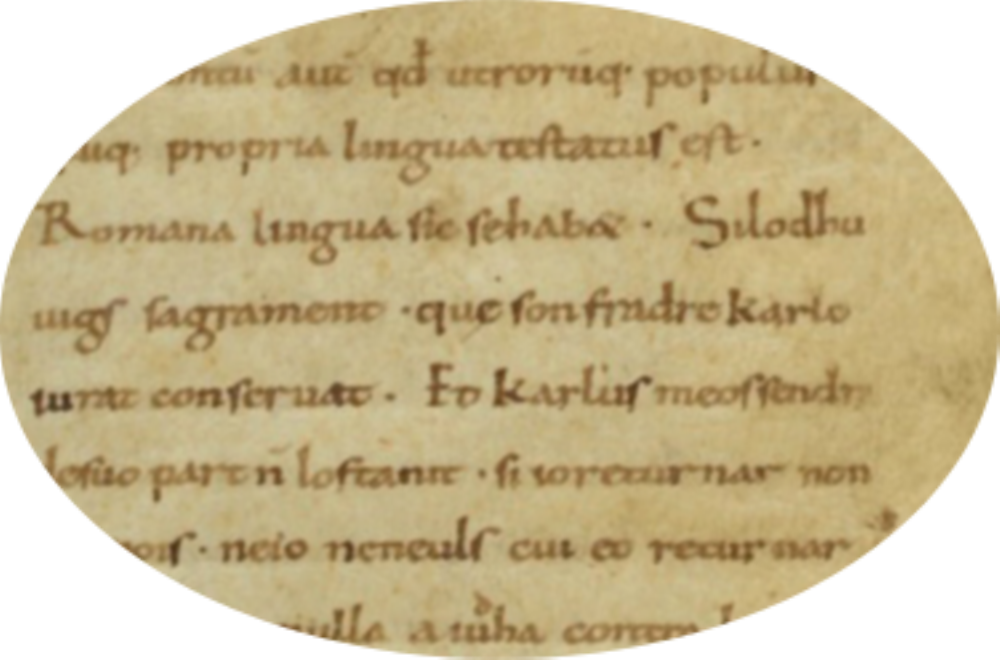 aut qd utrorūq; populus
uq; propria lingua testatus est.
Romana lingua sic se habet. Silodhu
uigs sagrament. que son fradre karlo
iurat conseruat. Et karlus meossendr
losuo part n̄ lostanit. si ioreturnar non
pois. neio neneuls cui eo returnar
nulla aiudha contra